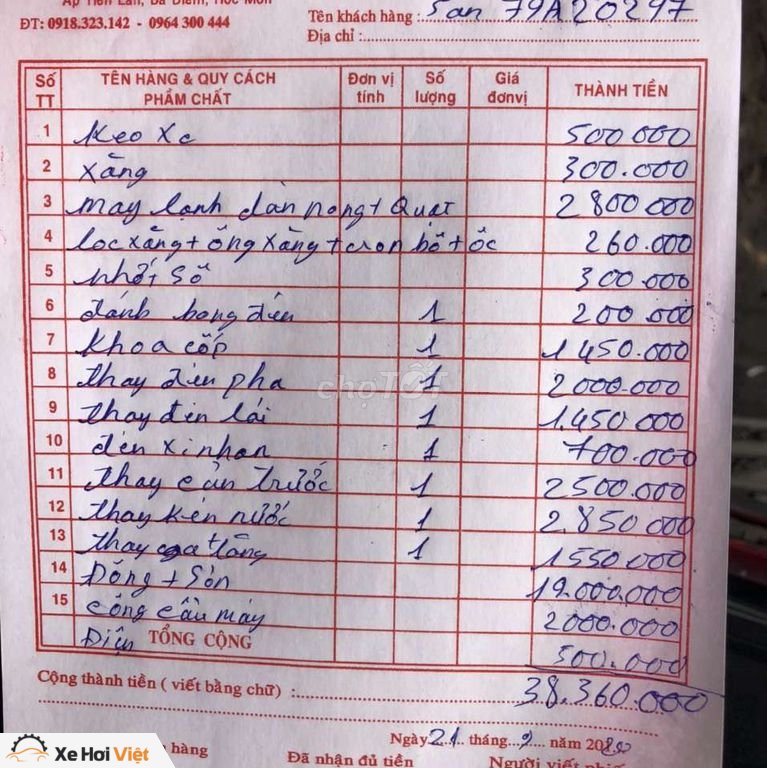 Ấp Tiền Lân, Bà Điểm, Hóc Môn
ĐT: 0918.323.142 - 0964 300 444
Tên khách hàng : San 79A20297
Địa chỉ :
Số TT TÊN HÀNG & QUY CÁCH PHẨM CHẤT Đơn vị tính Số lượng Giá đơnvị THÀNH TIỀN
1 Keo Xe 500 000
2 xăng 300.000
3 máy lạnh dàn nong + Quạt 2 800 000
4 lọc xăng + ống xăng + cron bô + ốc 260.000
5 nhớt Số 300 000
6 đánh bong đèn 1 200 000
7 Khoa cốp 1 1 450.000
8 thay đèn pha 1 2 000.000
9 thay đèn lái 1 1.450 000
10 đèn xi nhan 1 700.000
11 thay cản trước 1 2 500 000
12 thay két nước 1 2.850 000
13 thay tầng 1 1 550 000
14 Đồng + Sơn 19.000.000
15 công cẩu máy 2000.000
TỔNG CỘNG
Điện 500.000
Cộng thành tiền ( viết bằng chữ ) : 38.360 000
Ngày 21 tháng 9 năm 2020
hàng Đã nhận đủ tiền Người viết phiếu
chợ TỐT
Xe Hơi Việt